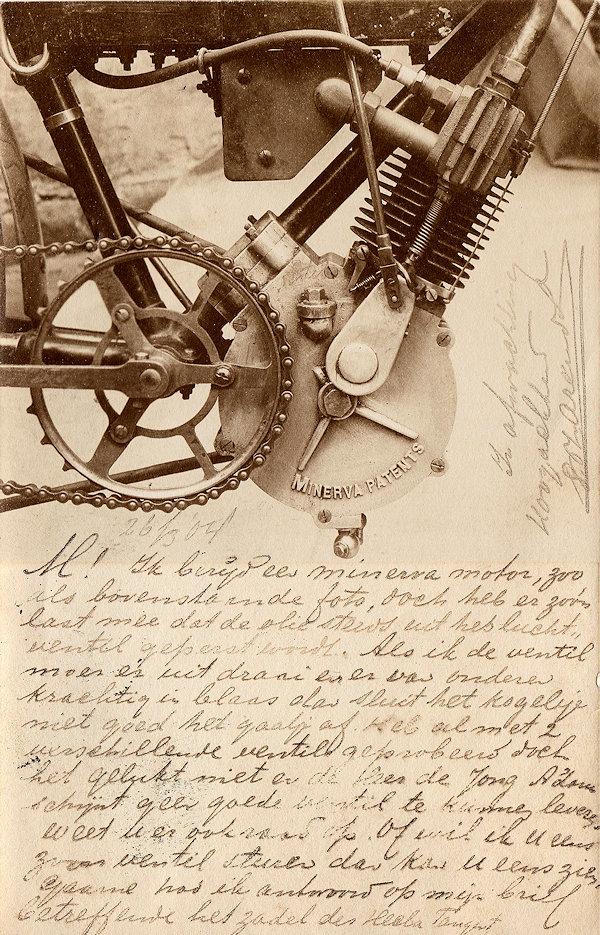 MINERVA PATENTS
26/3 04
In afwachting
hoogachtend
M! Ik berijd een minerva motor, zoo
als bovenstaande foto, doch heb er zoo'n
last mee dat de olie steeds uit het lucht„
ventil geperst wordt. Als ik de ventil
moer er uit draai en er van onderen
krachtig in blaas dan sluit het kogeltje
niet goed het gaatje af. Heb al met 2
verschillende ventils geprobeerd doch
het gelukt niet en de Heer de Jong Adam
schijnt geen goede ventil te kunnen leveren
weet u er ook raad op Of wil ik U eens
zoo'n ventil sturen dan kan U eens zien
Gaarne had ik antwoord op mijn brief
betreffende het zadel der